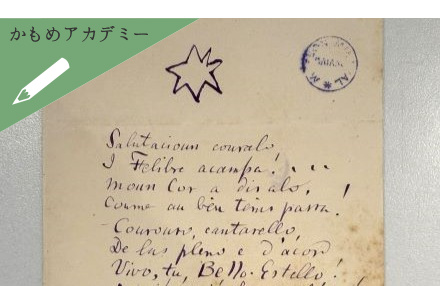 かもめアカデミー
Salutacioun couralo!
I Felibre acampa! . . .
Moun Cor a dis alo, !
Coume au bèu tèms passa!
Courouso, cantarello,
De lus pleno e d'acord
Vivo, tu, Bello Estello!